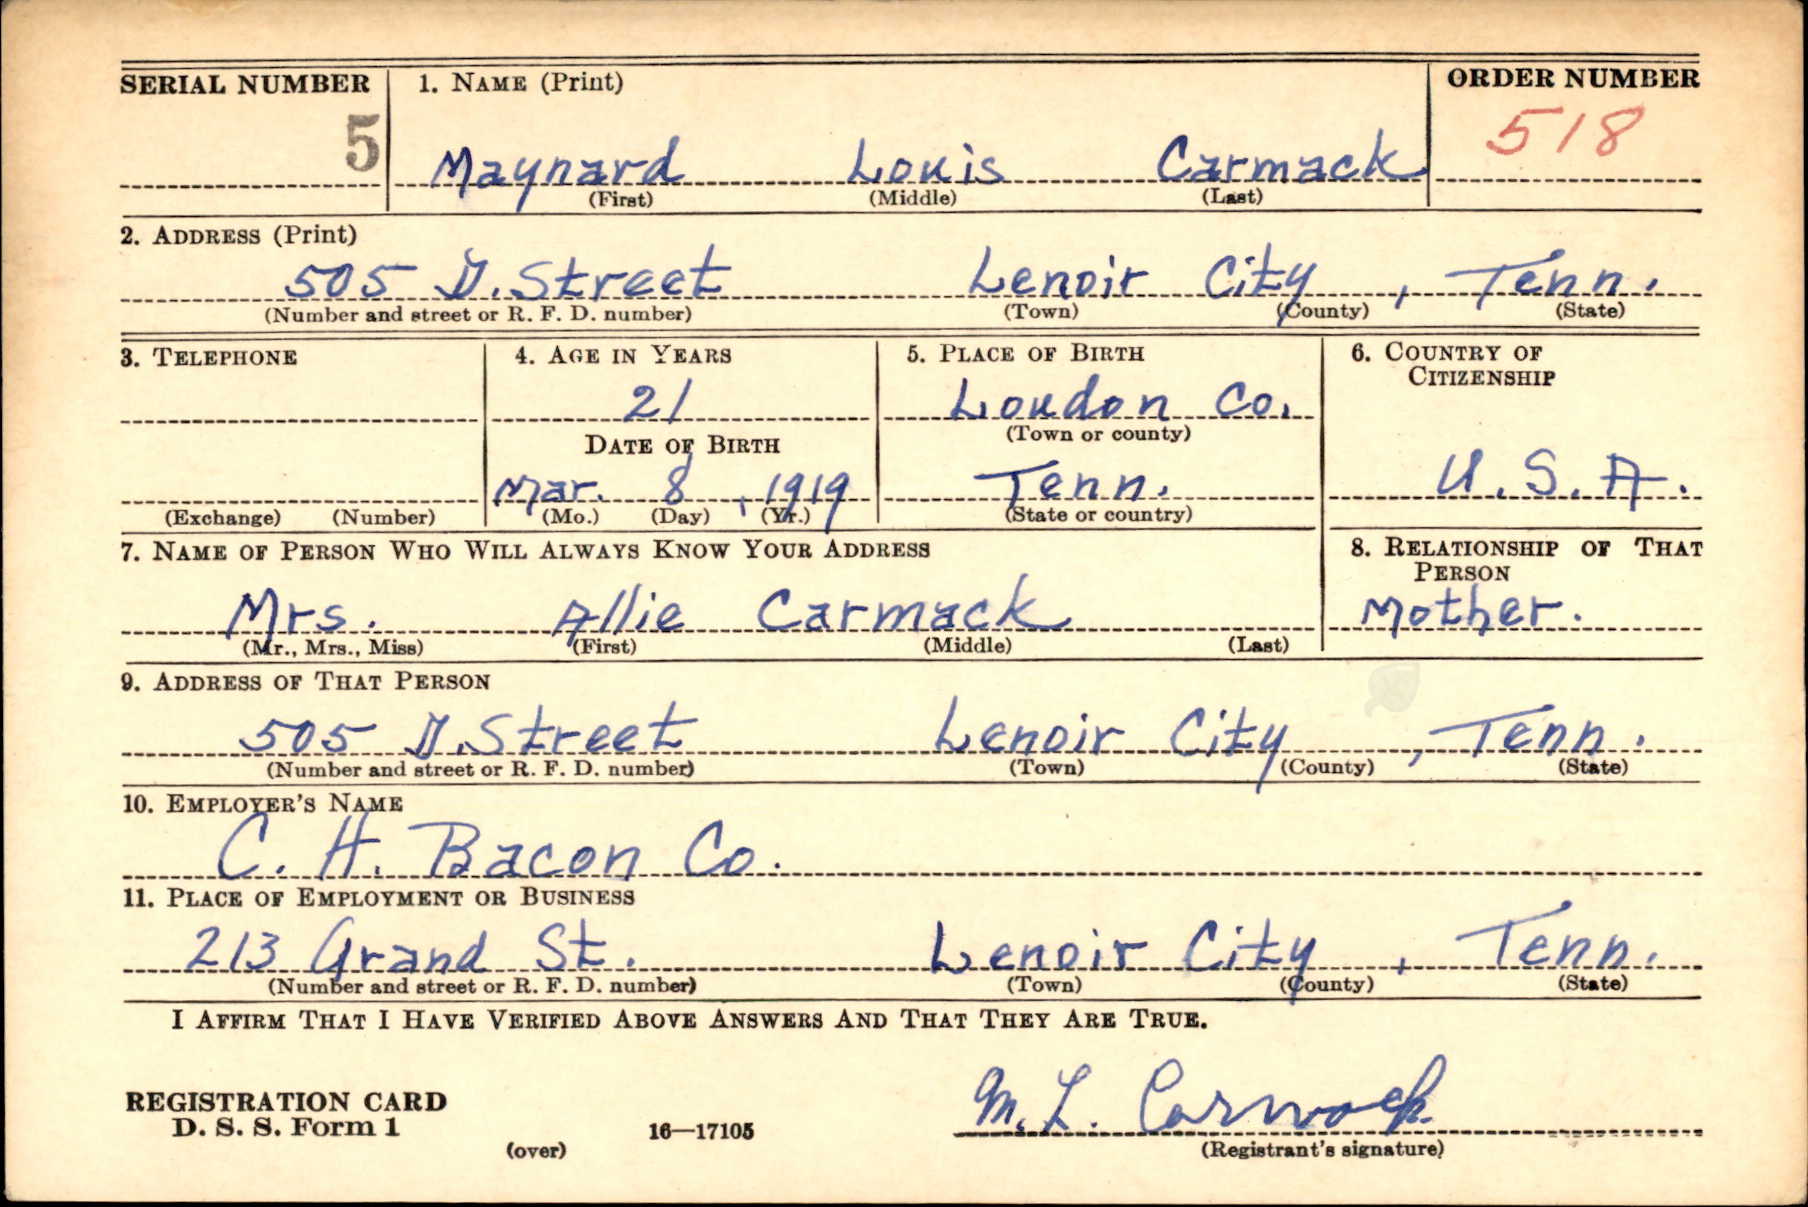 SERIAL NUMBER
5
1. NAME (Print)
Maynard Louis Carmack
(First) (Middle) (Last)
ORDER NUMBER
518
2. ADDRESS (Print)
505 D. Street Lenoir City, Tenn.
(Number and street or R. F. D. number) (Town) (County) (State)
3. TELEPHONE
(Exchange) (Number)
4. AGE IN YEARS
21
DATE OF BIRTH
Mar. 8, 1919
(Mo.) (Day) (Yr.)
5. PLACE OF BIRTH
Loudon Co.
(Town or county)
Tenn.
(State or country)
6. COUNTRY OF
CITIZENSHIP
U.S.A.
7. NAME OF PERSON WHO WILL ALWAYS KNOW YOUR ADDRESS
Mrs. Allie Carmack
(Mr., Mrs., Miss) (First) (Middle) (Last)
8. RELATIONSHIP OF THAT
PERSON
Mother.
9. ADDRESS OF THAT PERSON
505 D. Street Lenoir City, Tenn.
(Number and street or R. F. D. number) (Town) (County) (State)
10. EMPLOYER'S NAME
C. H. Bacon Co.
11. PLACE OF EMPLOYMENT OR BUSINESS
213 Grand St. Lenoir City, Tenn.
(Number and street or R. F. D. number) (Town) (County) (State)
I AFFIRM THAT I HAVE VERIFIED ABOVE ANSWERS AND THAT THEY ARE TRUE.
REGISTRATION CARD
D. S. S. Form 1
(over)
16—17105
M. L. Carmack
(Registrant's signature)